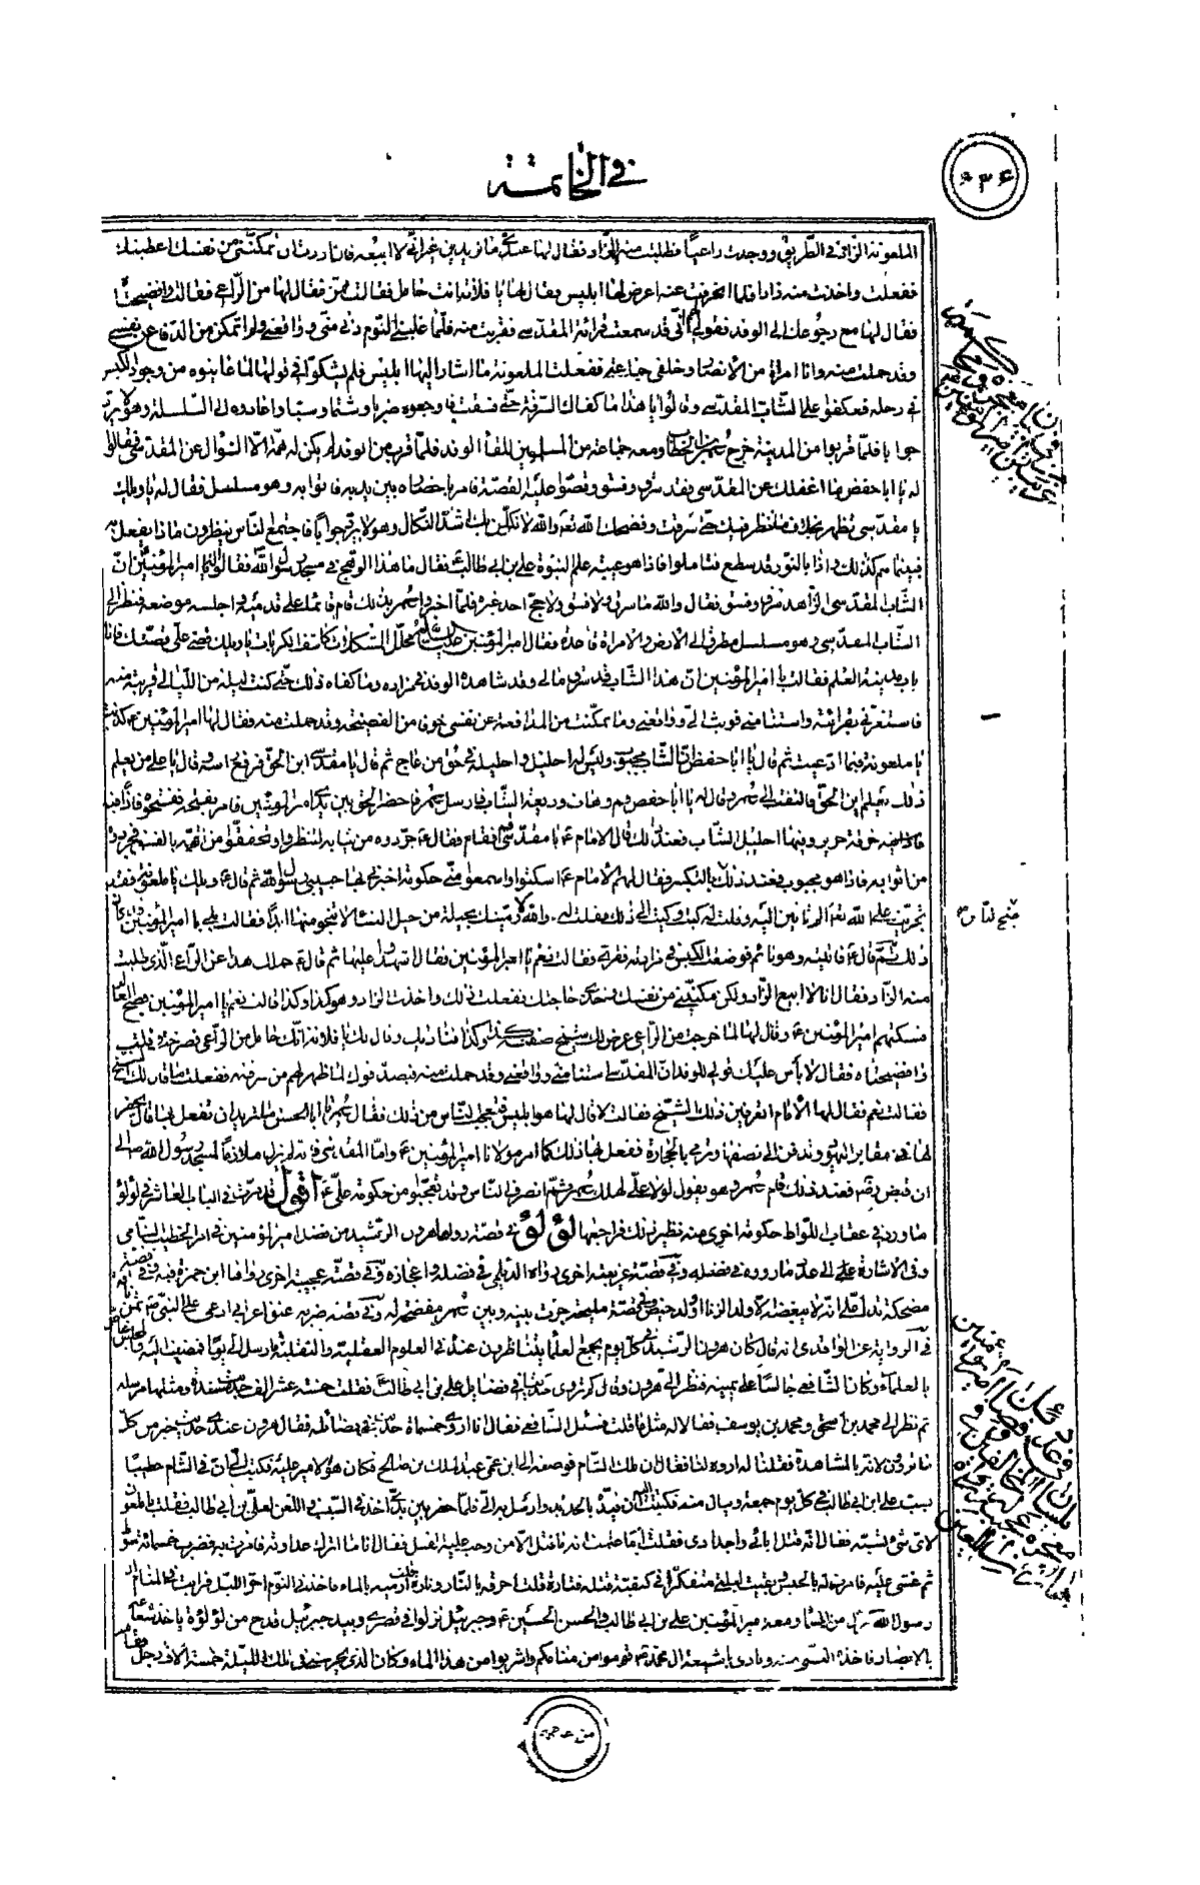 في الخاتمة
٩٣٤
الملعونة الزاد في الطريق ووجدت راعيا فطلبت منه الزاد فقال لها عندي ما تريدين غير اني لا ابيعه فان اردت ان تمكنيني من نفسك اعطيتك
ففعلت واخذت منه زادا فلما انحرفت عنه اعرض لها ابليس وقال لها يا فلانة انت حامل فقالت ممن فقال لها من الراعي فقالت وا فضيحتاه
فقال لها مع رجوعك الى الوفد فقولي اني قد سمعت قرائة المقدسي فقربت منه فلما غلبني النوم دنى مني وواقعني ولم اتمكن من الدفاع عن نفسي
وقد حملت منه وانا امراة من الانصار وخلفي جماعة ففعلت الملعونة ما اشار اليها ابليس فلم يشكوا في قولها لما عاينوه من وجود الكيس
في رحله فعكفوا على الشاب المقدسي وقالوا يا هذا ما كفاك السرقة حتى فسقت فاوجعوه ضربا وشتما وسبا واعادوه الى السلسلة وهو لا يرد
جوابا فلما قربوا من المدينة خرج عمر بن الخطاب ومعه جماعة من المسلمين للقاء الوفد فلما قرب من الوفد لم يكن له همة الا السؤال عن المقدسي فقالوا
له يا ابا حفص ما اغفلك عن المقدسي فقد سرق وفسق وقصوا عليه القصة فامر باحضاره بين يديه فاتوا به وهو مسلسل فقال له يا ويلك
يا مقدسي تظهر بخلاف ما نظر فيك حتى سرقت وفضحك الله تعالى والله لانكلن بك اشد النكال وهو لا يرد جوابا فاجتمع الناس ينظرون ماذا يفعل به
فبينما هم كذلك واذا بالنور قد سطع فتاملوا فاذا هو عيبة علم النبوة علي بن ابي طالب فقال ما هذا الوهج في مسجد رسول الله فقالوا يا امير المؤمنين ان
الشاب المقدسي الزاهد سرق وفسق فقال والله ما سرق ولا فسق ولا حج احد غيره فلما اخبروا عمر بذلك قام قائما على قدميه واجلسه موضعه فنظر الى
الشاب المقدسي وهو مسلسل مطرق الى الارض والامراة قاعدة فقال امير المؤمنين محلل المشكلات وكاشف الكربات يا ويلك قصي علي قصتك فانا
باب مدينة العلم فقالت يا امير المؤمنين ان هذا الشاب قد سرق مالي وقد شاهده الوفد في مزاده وما كفاه ذلك حتى كنت ليلة من الليالي قريبة منه
فاستغرني بقرائته واستنامني فوثب الي وواقعني وما تمكنت من المدافعة عن نفسي خوفا من الفضيحة وقد حملت منه فقال لها امير المؤمنين كذبت
يا ملعونة فيما ادعيت ثم قال يا ابا حفص ان الشاب مجبوب وليس له احليل واحليله في حق من عاج ثم قال يا مقدسي اين الحق فرفع راسه وقال يا علي من يعلم
ذلك يعلم اين الحق فالتفت الى عمر وقال له يا ابا حفص قم وهات وديعة الشاب فارسل عمر فاحضر الحق بين يدي امير المؤمنين فامر بفتحه ففتحوه فاذا فيه
خرقة حرير وفيها احليل الشاب فعند ذلك قال الامام يا مقدسي قم فقام فقال جردوه من ثيابه لتنظروا وتحققوا من اتهمه بالفسق فجردوه
من اثوابه فاذا هو مجبوب فعند ذلك بالتكبير فقال لهم الامام اسكتوا واسمعوا مني حكومة اخبرني بها حبيبي رسول الله ثم قال ويلك يا ملعونة فقد
تجريت على الله تعالى الم تاتين اليه وقلت له كيت وكيت الى ذلك فقلت له والله لارمينك بحيلة من حيل النساء لا تنجو منها ابدا فقالت بلى يا امير المؤمنين كان
ذلك ثم قال فاتيته وهو نائم فوضعت الكيس في مزادته فقري فقالت نعم يا امير المؤمنين فقال اشهدوا عليها ثم قال حملك هذا من الراعي الذي طلبت
منه الزاد فقال انا لا ابيع الزاد ولكن مكنيني من نفسك وخذي حاجتك ففعلت ذلك واخذت الزاد وهو كذا وكذا قالت نعم يا امير المؤمنين فضج العالم
فسكتهم امير المؤمنين وقال لها لما خرجت من الراعي عرض لك شيخ صفته كذا وكذا فناداك وقال لك يا فلانة انك حامل من الراعي فصرخت وقلت
وا فضيحتاه فقال لا باس عليك قولي للوفد ان المقدسي استنامني وواقعني وقد حملت منه فيصدقوك لما ظهر لهم من سرقته ففعلت ما قال لك الشيخ
فقالت نعم فقال لها الامام اتعرفين ذلك الشيخ فقالت لا قال لها هو ابليس فتعجب الناس من ذلك فقال عمر يا ابا الحسن ما تريد ان تفعل بها قال يحفر
لها في مقابر اليهود وتدفن الى نصفها وترجم بالحجارة ففعل بها ذلك كما امر مولانا امير المؤمنين واما المقدسي فانه لم يزل ملازما لمسجد رسول الله الى
ان قبض فعند ذلك قام عمر وهو يقول لولا علي لهلك عمر ثم انصرف الناس وقد تعجبوا من حكومة علي اقول قد مرت في الباب العاشر في لؤلؤ
ما ورد في عقاب اللواط حكومة اخرى منه نظير تلك فراجعها لؤلؤ في قصة رواها هرون الرشيد من فضل امير المؤمنين في امر الخطيب الشامي
وفي الاشارة الى عدد ما رووه في فضله وفي قصة غريبة اخرى رواه الديلمي في فضله واعجازه وفي قصة عجيبة اخرى رواها ابن حمزة فيه وفي قصة
مضحكة تدل على انه لا يبغضه الا ولد الزنا او ولد حيض وفي قصة مليحة جرت بينه وبين عمر مفضحة له وفي قصة ضربه عنق اعرابي ادعى على النبي ثمن ناقة
في الرواية عن الواقدي انه قال كان هرون الرشيد في كل يوم يجمع العلماء يتناظرون عنده في العلوم العقلية والنقلية فارسل الي يوما فمضيت اليه والمجلس غاص
بالعلماء وكان الشافعي جالسا على يمينه فنظر الى هرون وقال كم تروي حديثا في فضايل علي بن ابي طالب فقلت خمسة عشر الف حديث مسندة ومثلها مرسلة
ثم نظر الى محمد بن اسحق ومحمد بن يوسف فقالا له مثل ما قلت فسئل الشافعي فقال انا اروي خمسماة حديث في فضائله فقال هرون عندي حديث خير من كل
ما تروون لانه بالمشاهدة فقلنا له اروه لنا فقال ان ملك الشام فوضته الى ابن عمي عبد الملك بن صالح فكان هو الامير عليه فكتب الي ان في الشام خطيبا
يسب علي ابن ابي طالب في كل يوم جمعة وينال منه فكتبت اليه ان قيده بالحديد وارسل به الي فلما حضر بين يدي اخذ في السب واللعن لعلي بن ابي طالب فقلت يا ملعون
لاي شئ تسبه فقال انه قتل ابائي واجدادي فقلت اما علمت انه ما قتل الا من وجب عليه القتل فقال انا ما اترك عداوته فامرت به فضرب خمسمائة سوط
ثم غشي عليه فامرت له بالحبس وبقيت ليلتي متفكرا في كيفية قتله فتارة قلت احرقه بالنار وتارة قلت ارميه بالماء فاخذني النوم اخر الليل فرايت في المنام ان
رسول الله نزل من السماء ومعه امير المؤمنين علي بن ابي طالب والحسن الحسين وجبرئيل نزلوا في قصري وبيد جبرئيل قدح من لؤلؤة ياخذ شعاعه
بالابصار فاخذه النبي منه ونادى يا شيعة ال محمد قوموا من منامكم واشربوا من هذا الماء وكان الذي يحرسني في تلك الليلة خمسة الاف رجل